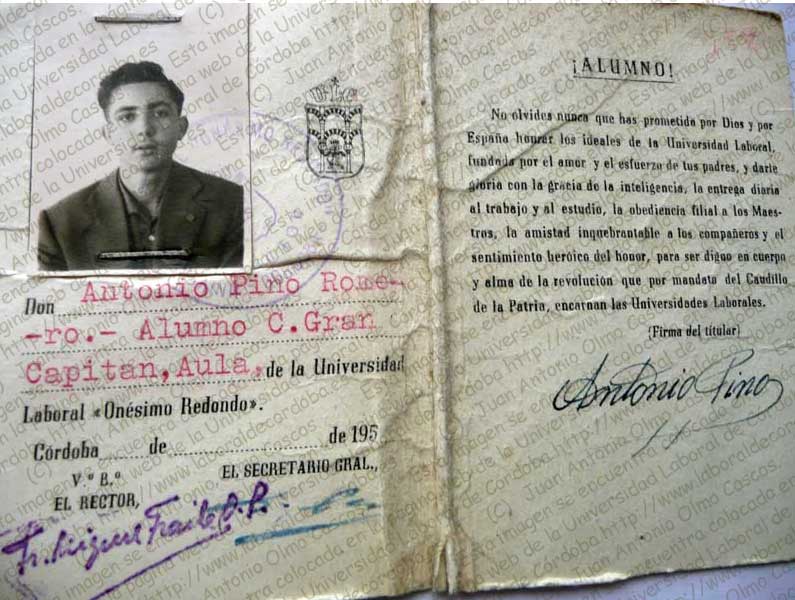 Don Antonio Pino Rome-
-ro.- Alumno C.Gran
Capitan, Aula, de la Universidad
Laboral «Onésimo Redondo».
Córdoba de de 195
V.º B.º
EL RECTOR,
EL SECRETARIO GRAL.,
Fr. Miguel Fraile O.P.
¡ALUMNO!
No olvides nunca que has prometido por Dios y por
España honrar los ideales de la Universidad Laboral,
fundada por el amor y el esfuerzo de tus padres, y darle
gloria con la gracia de la inteligencia, la entrega diaria
al trabajo y al estudio, la obediencia filial a los Maes-
tros, la amistad inquebrantable a los compañeros y el
sentimiento heróico del honor, para ser digno en cuerpo
y alma de la revolución que por mandato del Caudillo
de la Patria, encarnan las Universidades Laborales.
(Firma del titular)
Antonio Pino